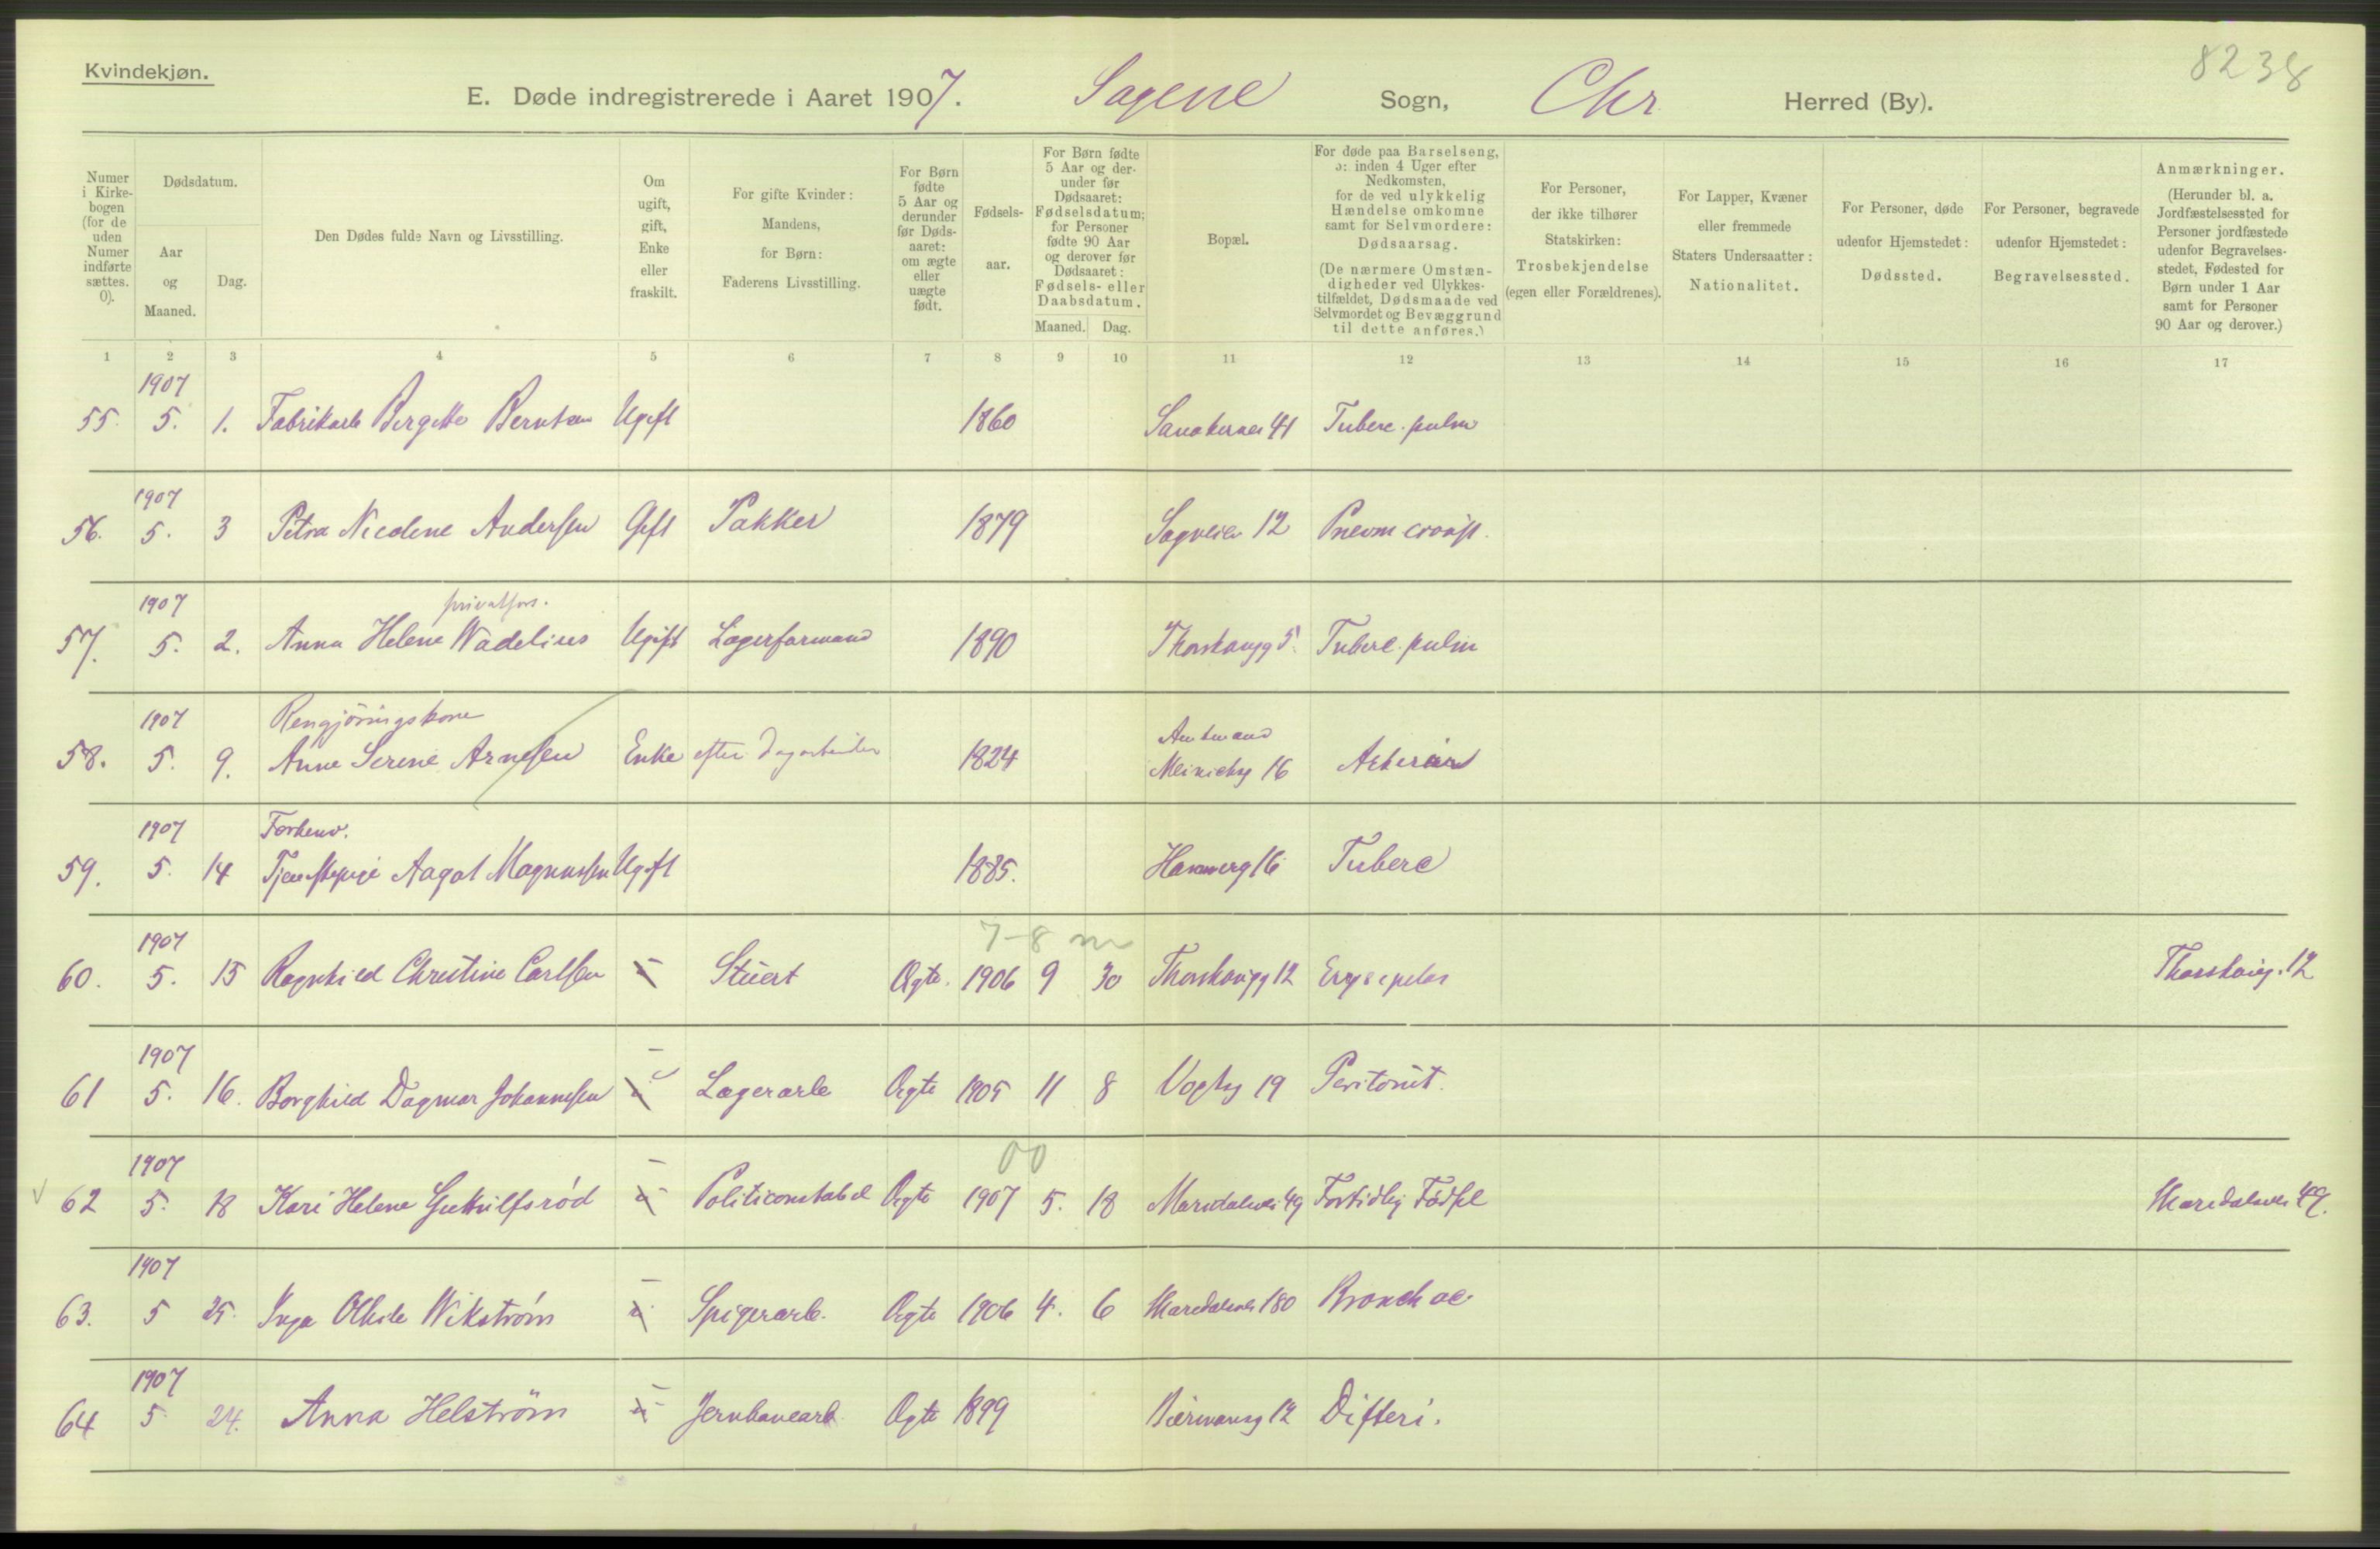 Kvindekjøn.
8238
E. Døde indregistrerede i Aaret 1907. Sagene Sogn, Chr Herred (By).
Numer i Kirkebogen (for de uden Numer indførte sættes. 0).
Dødsdatum.
Aar og Maaned.
Dag.
Den Dødes fulde Navn og Livsstilling.
Om ugift, gift, Enke eller fraskilt.
For gifte Kvinder: Mandens, for Børn: Faderens Livsstilling.
For Børn fødte 5 Aar og derunder før Dødsaaret: om ægte eller uægte født.
Fødselsaar.
For Børn fødte 5 Aar og derunder før Dødsaaret: Fødselsdatum; for Personer fødte 90 Aar og derover før Dødsaaret: Fødsels- eller Daabsdatum.
Maaned. Dag.
Bopæl.
For døde paa Barselseng, ɔ: inden 4 Uger efter Nedkomsten, for de ved ulykkelig Hændelse omkomne samt for Selvmordere: Dødsaarsag.
(De nærmere Omstændigheder ved Ulykkestilfældet, Dødsmaade ved Selvmordet og Bevæggrund til dette anføres.)
For Personer, der ikke tilhører Statskirken: Trosbekjendelse (egen eller Forældrenes).
For Lapper, Kvæner eller fremmede Staters Undersaatter: Nationalitet.
For Personer, døde udenfor Hjemstedet: Dødssted.
For Personer, begravede udenfor Hjemstedet: Begravelsessted.
Anmærkninger.
(Herunder bl. a. Jordfæstelsessted for Personer jordfæstede udenfor Begravelsesstedet, Fødested for Børn under 1 Aar samt for Personer 90 Aar og derover.)
1 2 3 4 5 6 7 8 9 10 11 12 13 14 15 16 17
1907
55. 5. 1. Fabrikarb Bergitte Berntsen Ugift 1860 Sandakerver 41 Tuberc. pulm
1907
56. 5. 3 Petra Nicoline Andersen Gift Pakker 1879 Sagveien 12 Pneum croup.
1907 privatfors.
57. 5. 2. Anna Helene Wadelius Ugift Lagerformand 1890 Thorshaugg 5. Tuberc. pulm
1907 Rengjöringskone Amtmand
58. 5. 9. Anne Serine Arnesen Enke efter Dagarbeider 1824 Meinichsg 16
1907 Forhenv.
59. 5. 14 Tjenestepige Aagot Magnussen Ugift 1885. Hammerg 16 Tuberc
1907 7-8 m
60. 5. 15 Ragnhild Christine Carlsen Stuert Ægte. 1906 9 30 Thorshaugg 12 Erysipelas Thorshaug. 12
1907
61 5. 16. Borghild Dagmar Johannesen Lagerarb Ægte 1905 11 8 Vogtsg 19 Peritonit.
1907 00
62 5. 18 Kari Helene Politiconstabel Ægte 1907 5. 18 Maridalsvei 49 Fortidlig Födsel Maridalsvei 49.
1907
63. 5 25. Inga Wikström Spigerarb. Ægte 1906 4. 6 Maridalsvei 180 Bronch ac
1907
64 5 24. Anna Helström Jernbanearb Ægte 1899 Biermannsg 12 Difteri.